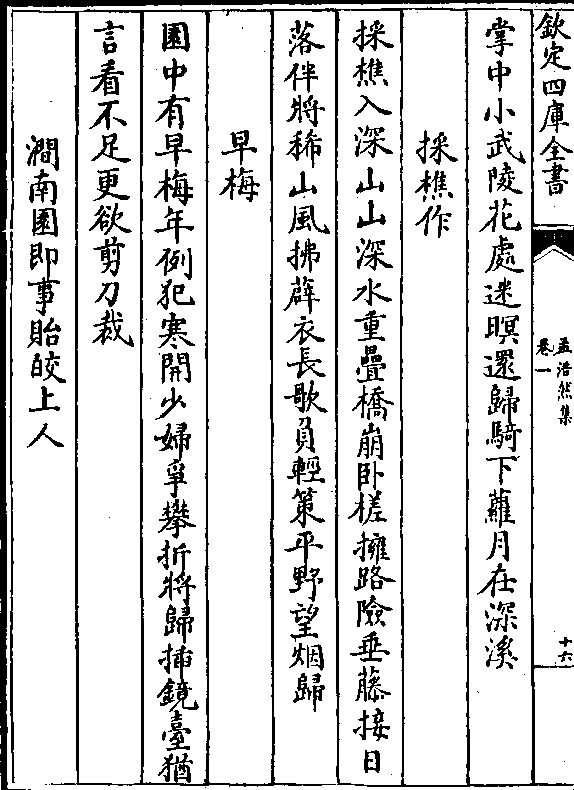 欽定四庫全書
孟浩然集
卷一
十六
掌中小武陵花處迷暝還歸騎下蘿月在深溪
採樵作
採樵入深山山深水重疊橋崩卧槎擁路險垂藤接日
落伴將稀山風拂薜衣長歌負輕策平野望烟歸
早梅
園中有早梅年例犯寒開少婦爭攀折將歸揷鏡臺猶
言看不足更欲剪刀裁
澗南園即事貽皎上人